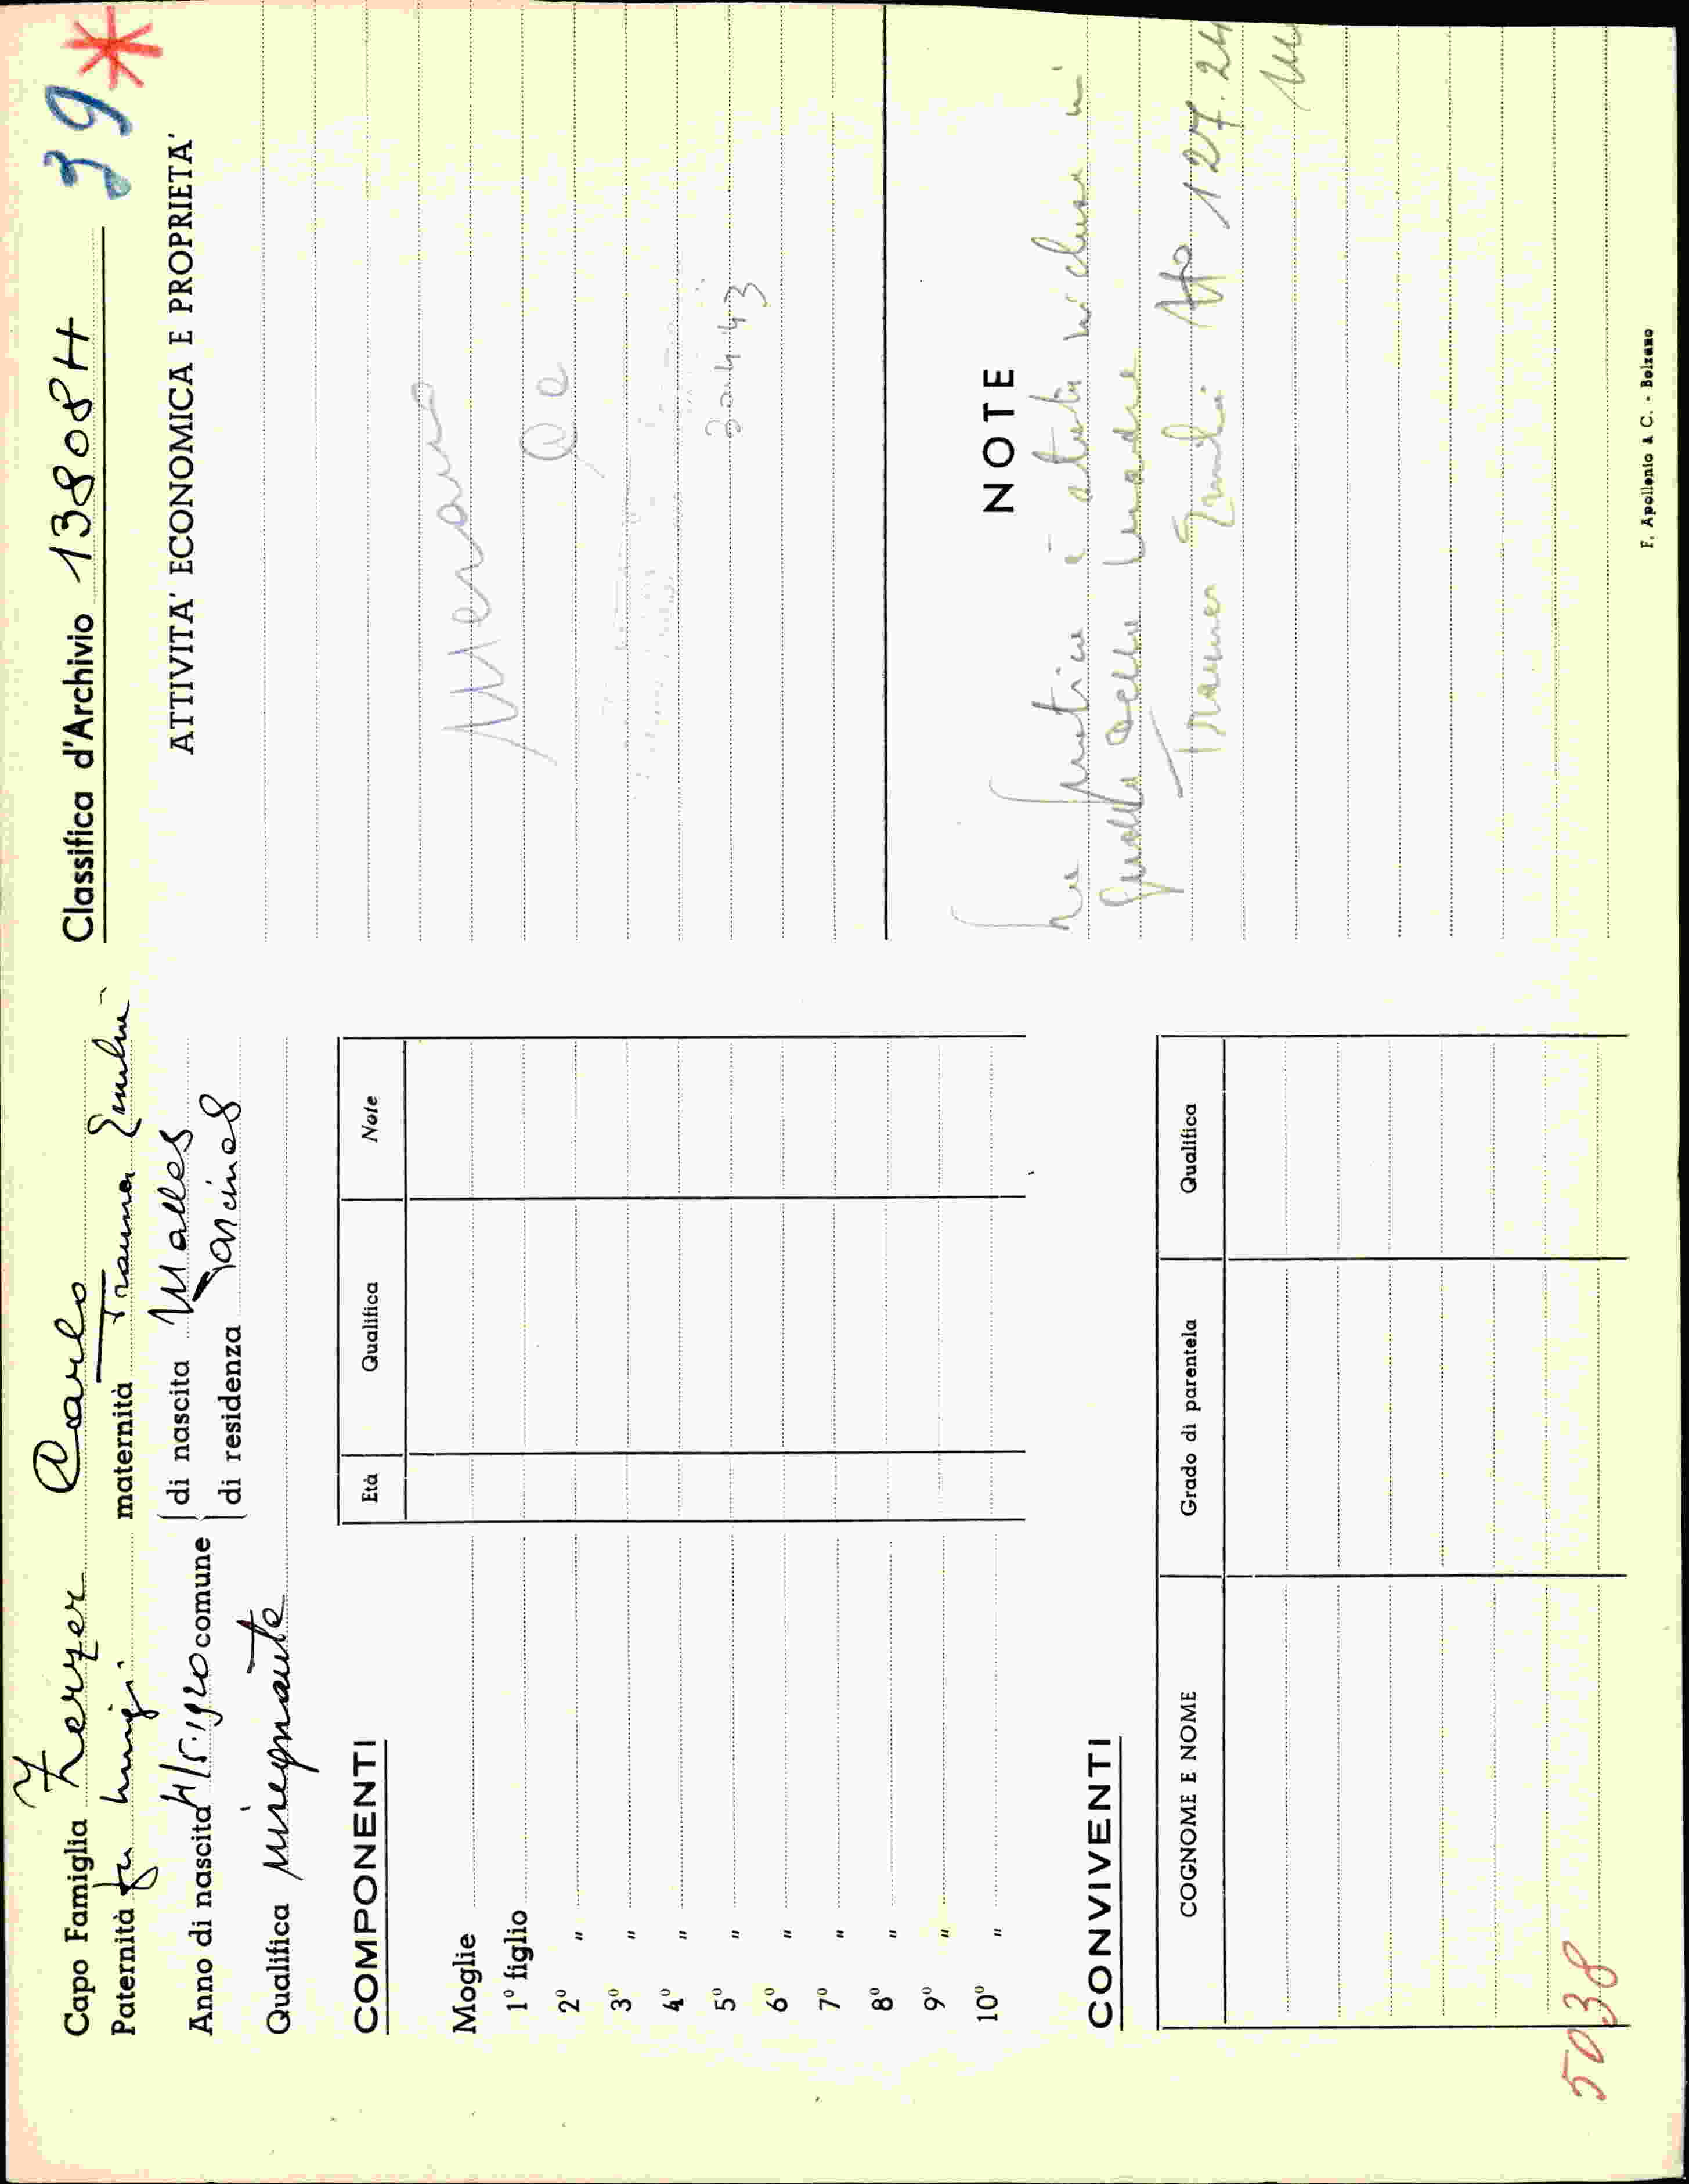 Capo Famiglia Zerzer Carlo
Paternità fu Luigi maternità Trauner Emilia
Anno di nascita 4/5.1920 comune di nascita Malles
di residenza Parcines
Qualifica insegnante
COMPONENTI
Età Qualifica Note
Moglie
1º figlio
2º "
3º "
4º "
5º "
6º "
7º "
8º "
9º "
10º "
CONVIVENTI
COGNOME E NOME Grado di parentela Qualifica
5038
Classifica d'Archivio 13808H 39 *
ATTIVITA' ECONOMICA E PROPRIETA'
Merano
30.4.43
NOTE
La pratica è stata richiusa in
quella della madre
Trauner Emilia No 127.24
F. Apollonio & C. - Bolzano